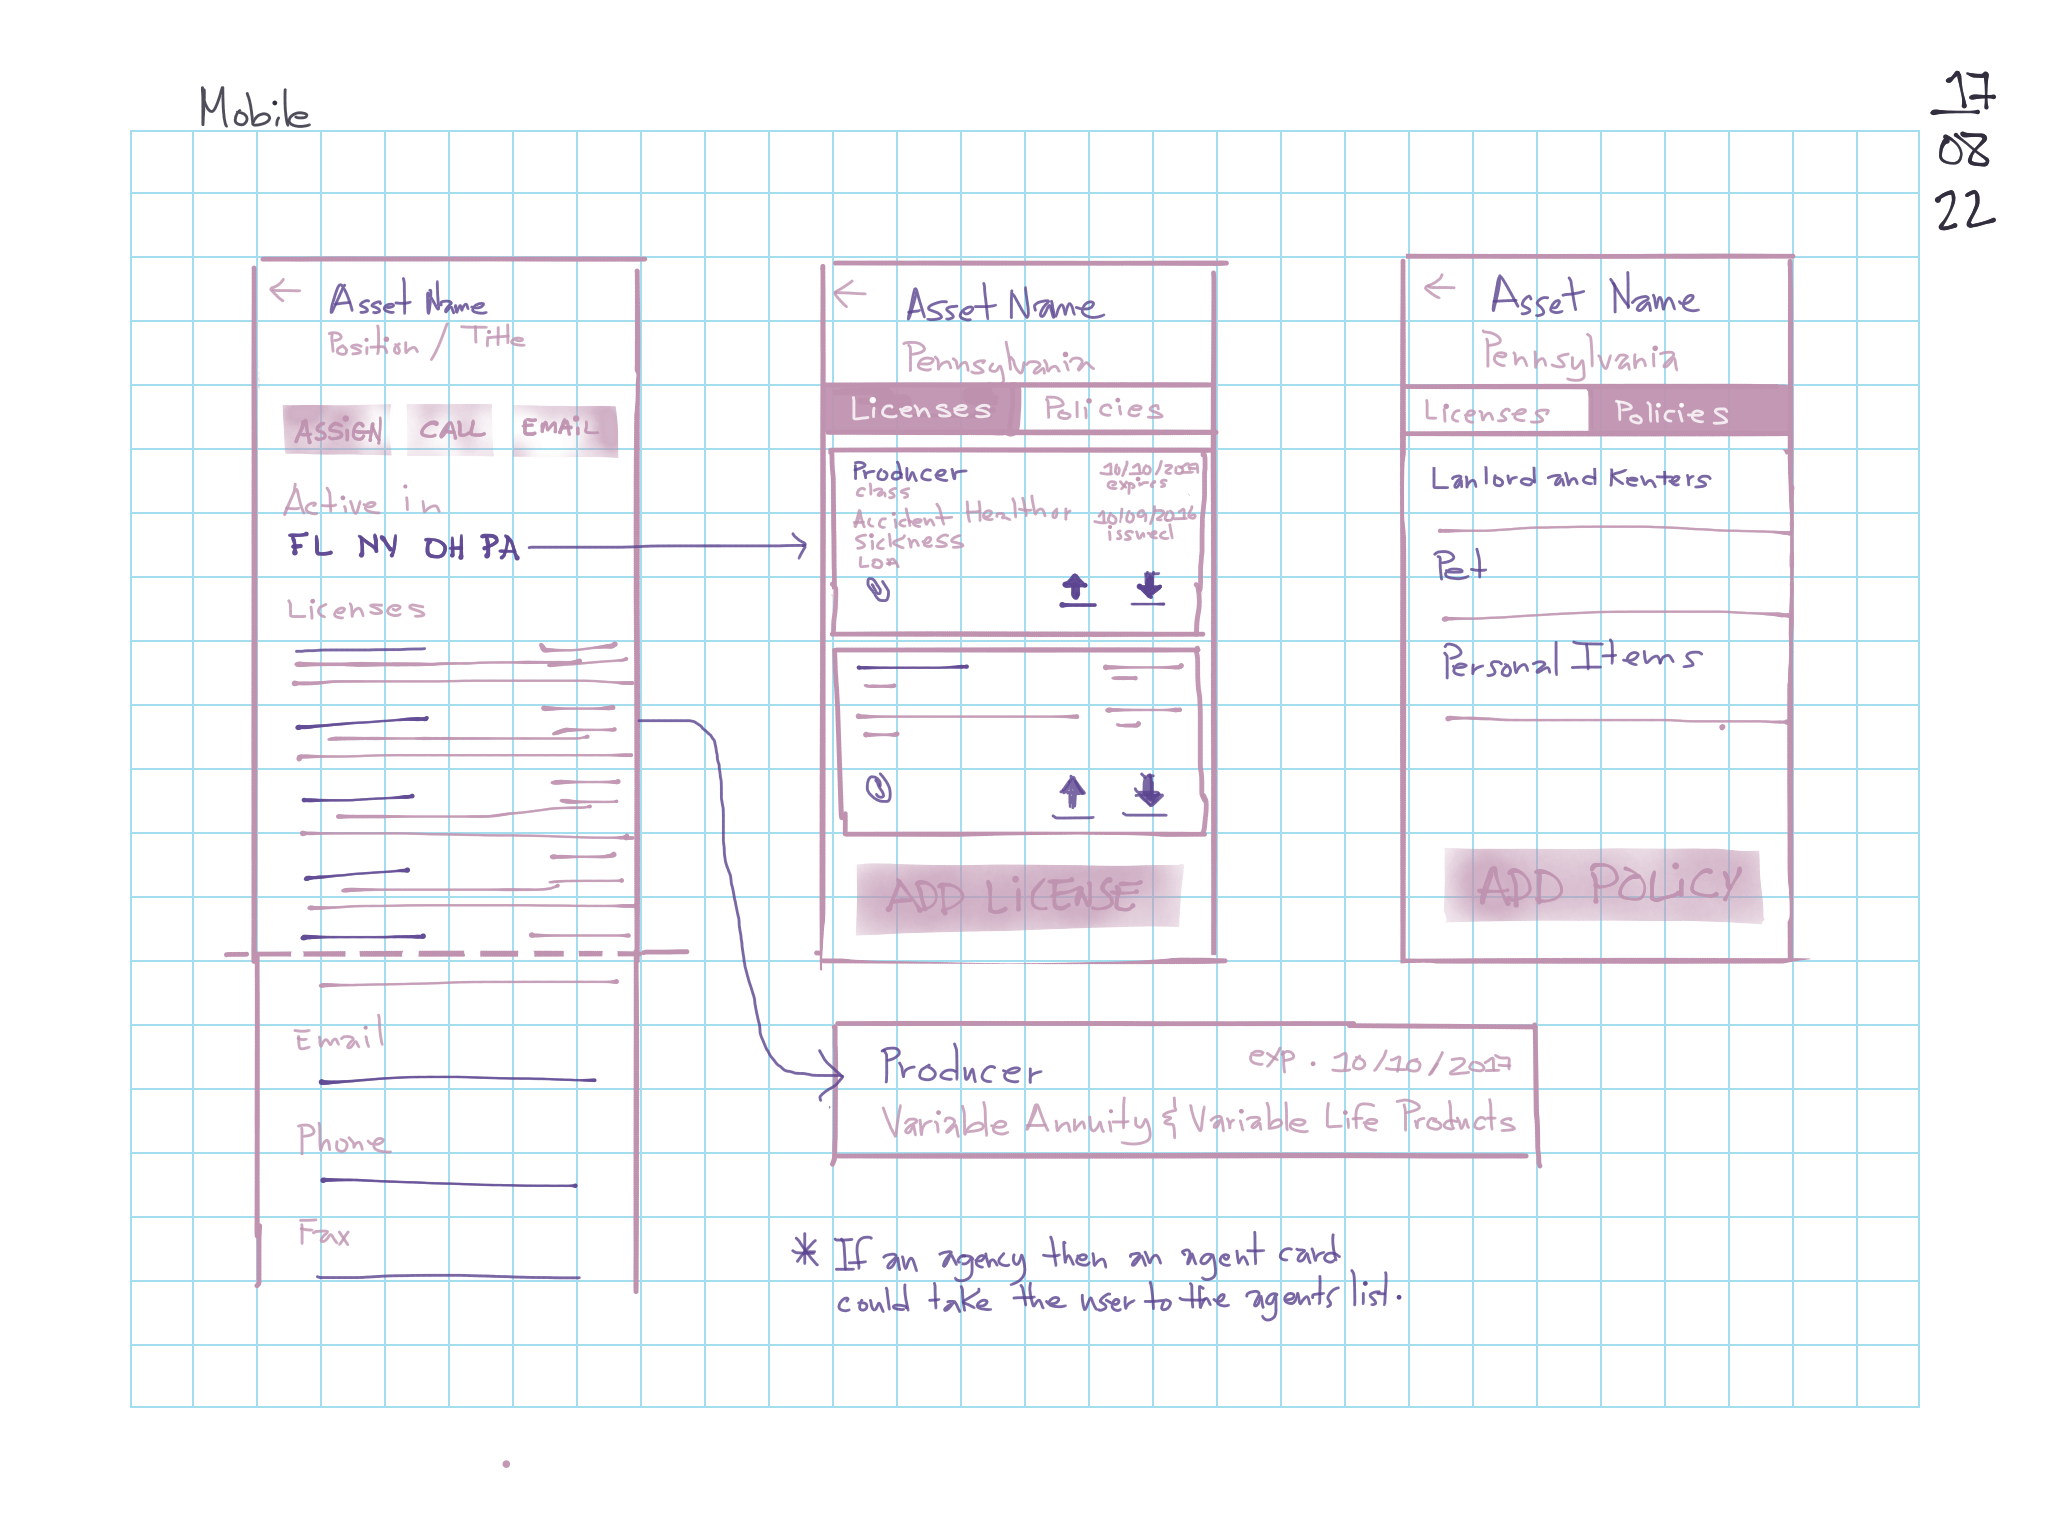 Mobile
17
08
22
Asset Name
Position / Title
ASSIGN CALL EMAIL
Active in
FL NY OH PA
Licenses
Email
Phone
Fax
Asset Name
Pennsylvania
Licenses Policies
Producer 10/10/2017
class expires
Accident Healthor 10/09/2016
Sickness issued
LOA
ADD LICENSE
Asset Name
Pennsylvania
Licenses Policies
Lanlord and Renters
Pet
Personal Items
ADD POLICY
Producer exp. 10/10/2017
Variable Annuity & Variable Life Products
* If an agency then an agent card
could take the user to the agents list.